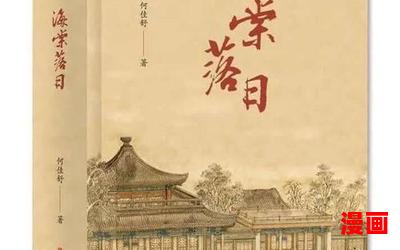 海棠落日
何佳舒
著
何佳舒——著
棠落日
漫画